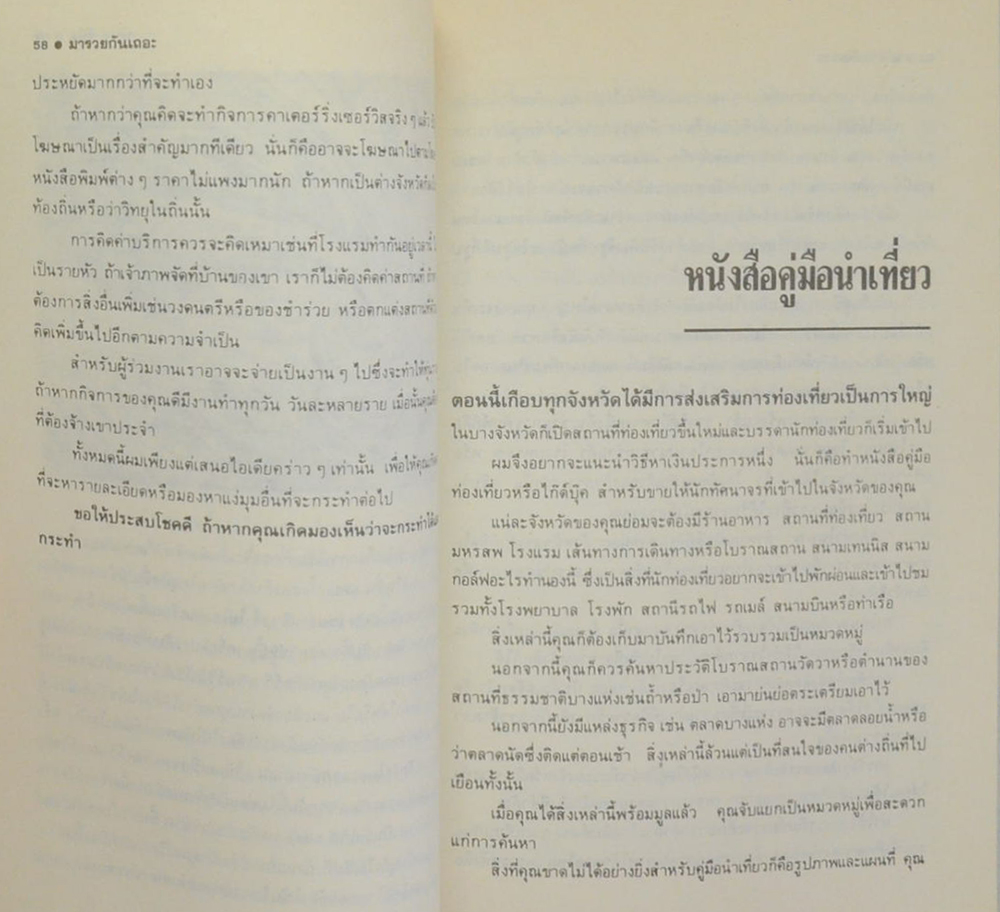 58 ● มารวยกันเถอะ
ประหยัดมากกว่าที่จะทำเอง
ถ้าหากว่าคุณคิดจะทำกิจการคาเตอร์ริ่งเซอร์วิสจริง ๆ แล้ว
โฆษณาเป็นเรื่องสำคัญมากทีเดียว นั่นก็คืออาจจะโฆษณาไป
หนังสือพิมพ์ต่าง ๆ ราคาไม่แพงมากนัก ถ้าหากเป็นต่างจังหวัด
ท้องถิ่นหรือว่าวิทยุในถิ่นนั้น
การคิดค่าบริการควรจะคิดเหมาเช่นที่โรงแรมทำกันอยู่
เป็นรายหัว ถ้าเจ้าภาพจัดที่บ้านของเขา เราก็ไม่ต้องคิดค่าสถานที่
ต้องการสิ่งอื่นเพิ่มเช่นวงดนตรีหรือของชำร่วย หรือตกแต่งสถานที่
คิดเพิ่มขึ้นไปอีกตามความจำเป็น
สำหรับผู้ร่วมงานเราอาจจะจ่ายเป็นงาน ๆ ไปซึ่งจะทำให้
ถ้าหากกิจการของคุณดีมีงานทำทุกวัน วันละหลายราย เมื่อนั้น
ที่ต้องจ้างเขาประจำ
ทั้งหมดนี้ผมเพียงแต่เสนอไอเดียคร่าว ๆ เท่านั้น เพื่อให้คุณ
ที่จะหารายละเอียดหรือมองหาแง่มุมอื่นที่จะกระทำต่อไป
ขอให้ประสบโชคดี ถ้าหากคุณเกิดมองเห็นว่าจะกระทำได้
กระทำ
หนังสือคู่มือนำเที่ยว
ตอนนี้เกือบทุกจังหวัดได้มีการส่งเสริมการท่องเที่ยวเป็นการใหญ่
ในบางจังหวัดก็เปิดสถานที่ท่องเที่ยวขึ้นใหม่และบรรดานักท่องเที่ยวก็เริ่มเข้าไป
ผมจึงอยากจะแนะนำวิธีหาเงินประการหนึ่ง นั่นก็คือทำหนังสือคู่มือ
ท่องเที่ยวหรือไก๊ด์บุ๊ค สำหรับขายให้นักทัศนาจรที่เข้าไปในจังหวัดของคุณ
แน่ละจังหวัดของคุณย่อมจะต้องมีร้านอาหาร สถานที่ท่องเที่ยว สถาน
มหรสพ โรงแรม เส้นทางการเดินทางหรือโบราณสถาน สนามเทนนิส สนาม
กอล์ฟอะไรทำนองนี้ ซึ่งเป็นสิ่งที่นักท่องเที่ยวอยากจะเข้าไปพักผ่อนและเข้าไปชม
รวมทั้งโรงพยาบาล โรงพัก สถานีรถไฟ รถเมล์ สนามบินหรือท่าเรือ
สิ่งเหล่านี้คุณก็ต้องเก็บมาบันทึกเอาไว้รวบรวมเป็นหมวดหมู่
นอกจากนี้คุณก็ควรค้นหาประวัติโบราณสถานวัดวาหรือตำนานของ
สถานที่ธรรมชาติบางแห่งเช่นถ้ำหรือป่า เอามาย่นย่อตระเตรียมเอาไว้
นอกจากนี้ยังมีแหล่งธุรกิจ เช่น ตลาดบางแห่ง อาจจะมีตลาดลอยน้ำหรือ
ว่าตลาดนัดซึ่งติดแต่ตอนเช้า สิ่งเหล่านี้ล้วนแต่เป็นที่สนใจของคนต่างถิ่นที่ไป
เยือนทั้งนั้น
เมื่อคุณได้สิ่งเหล่านี้พร้อมมูลแล้ว คุณจับแยกเป็นหมวดหมู่เพื่อสะดวก
แก่การค้นหา
สิ่งที่คุณขาดไม่ได้อย่างยิ่งสำหรับคู่มือนำเที่ยวก็คือรูปภาพและแผนที่ คุณ